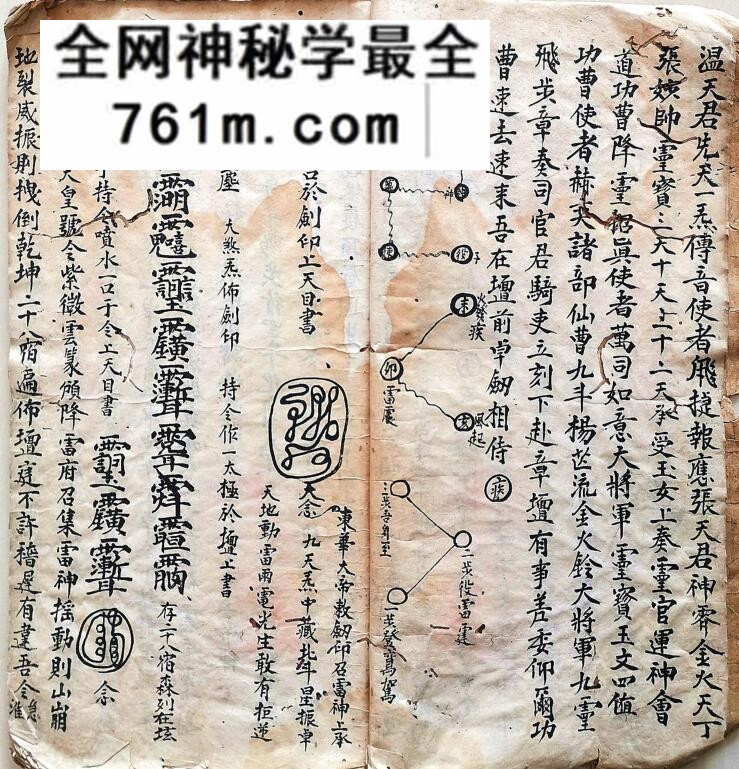 全网神秘学最全
761m.com
温天君先天一炁傳音使者飛捷報應張天君神霄金火天丁
張娛帥靈寶三天十天二十二天承受玉女上奏靈官運神會
道功曹降靈招真使者萬司如意大將軍靈寶玉文四値
功曹使者赫天諸部仙曹九斗揚芒流金火鈴大將軍九靈
飛步章奏司官君騎吏立刻下赴章壇有事善委仰爾功
曹速去速来吾在壇前掌劒相侍
火發
卯 雷震
亥 風起
三步吾身至
二步役雷霆
一步登鸞駕
東華大帝敕劒印召雷神上承
大念 九天炁中藏北斗星振卓
天地動雷雨電光生敢有拒逆
於劍印上天目書
大煞炁佈劍印 持令作一太極於壇上書
存二十八宿森列在坛
持令噴水一口于令上天目書
念
天皇號令紫微雲篆頒降雷府召集雷神摇動則山崩
地裂威振則拽倒乾坤二十八宿遍佈壇庭不許稽遲有違吾令急